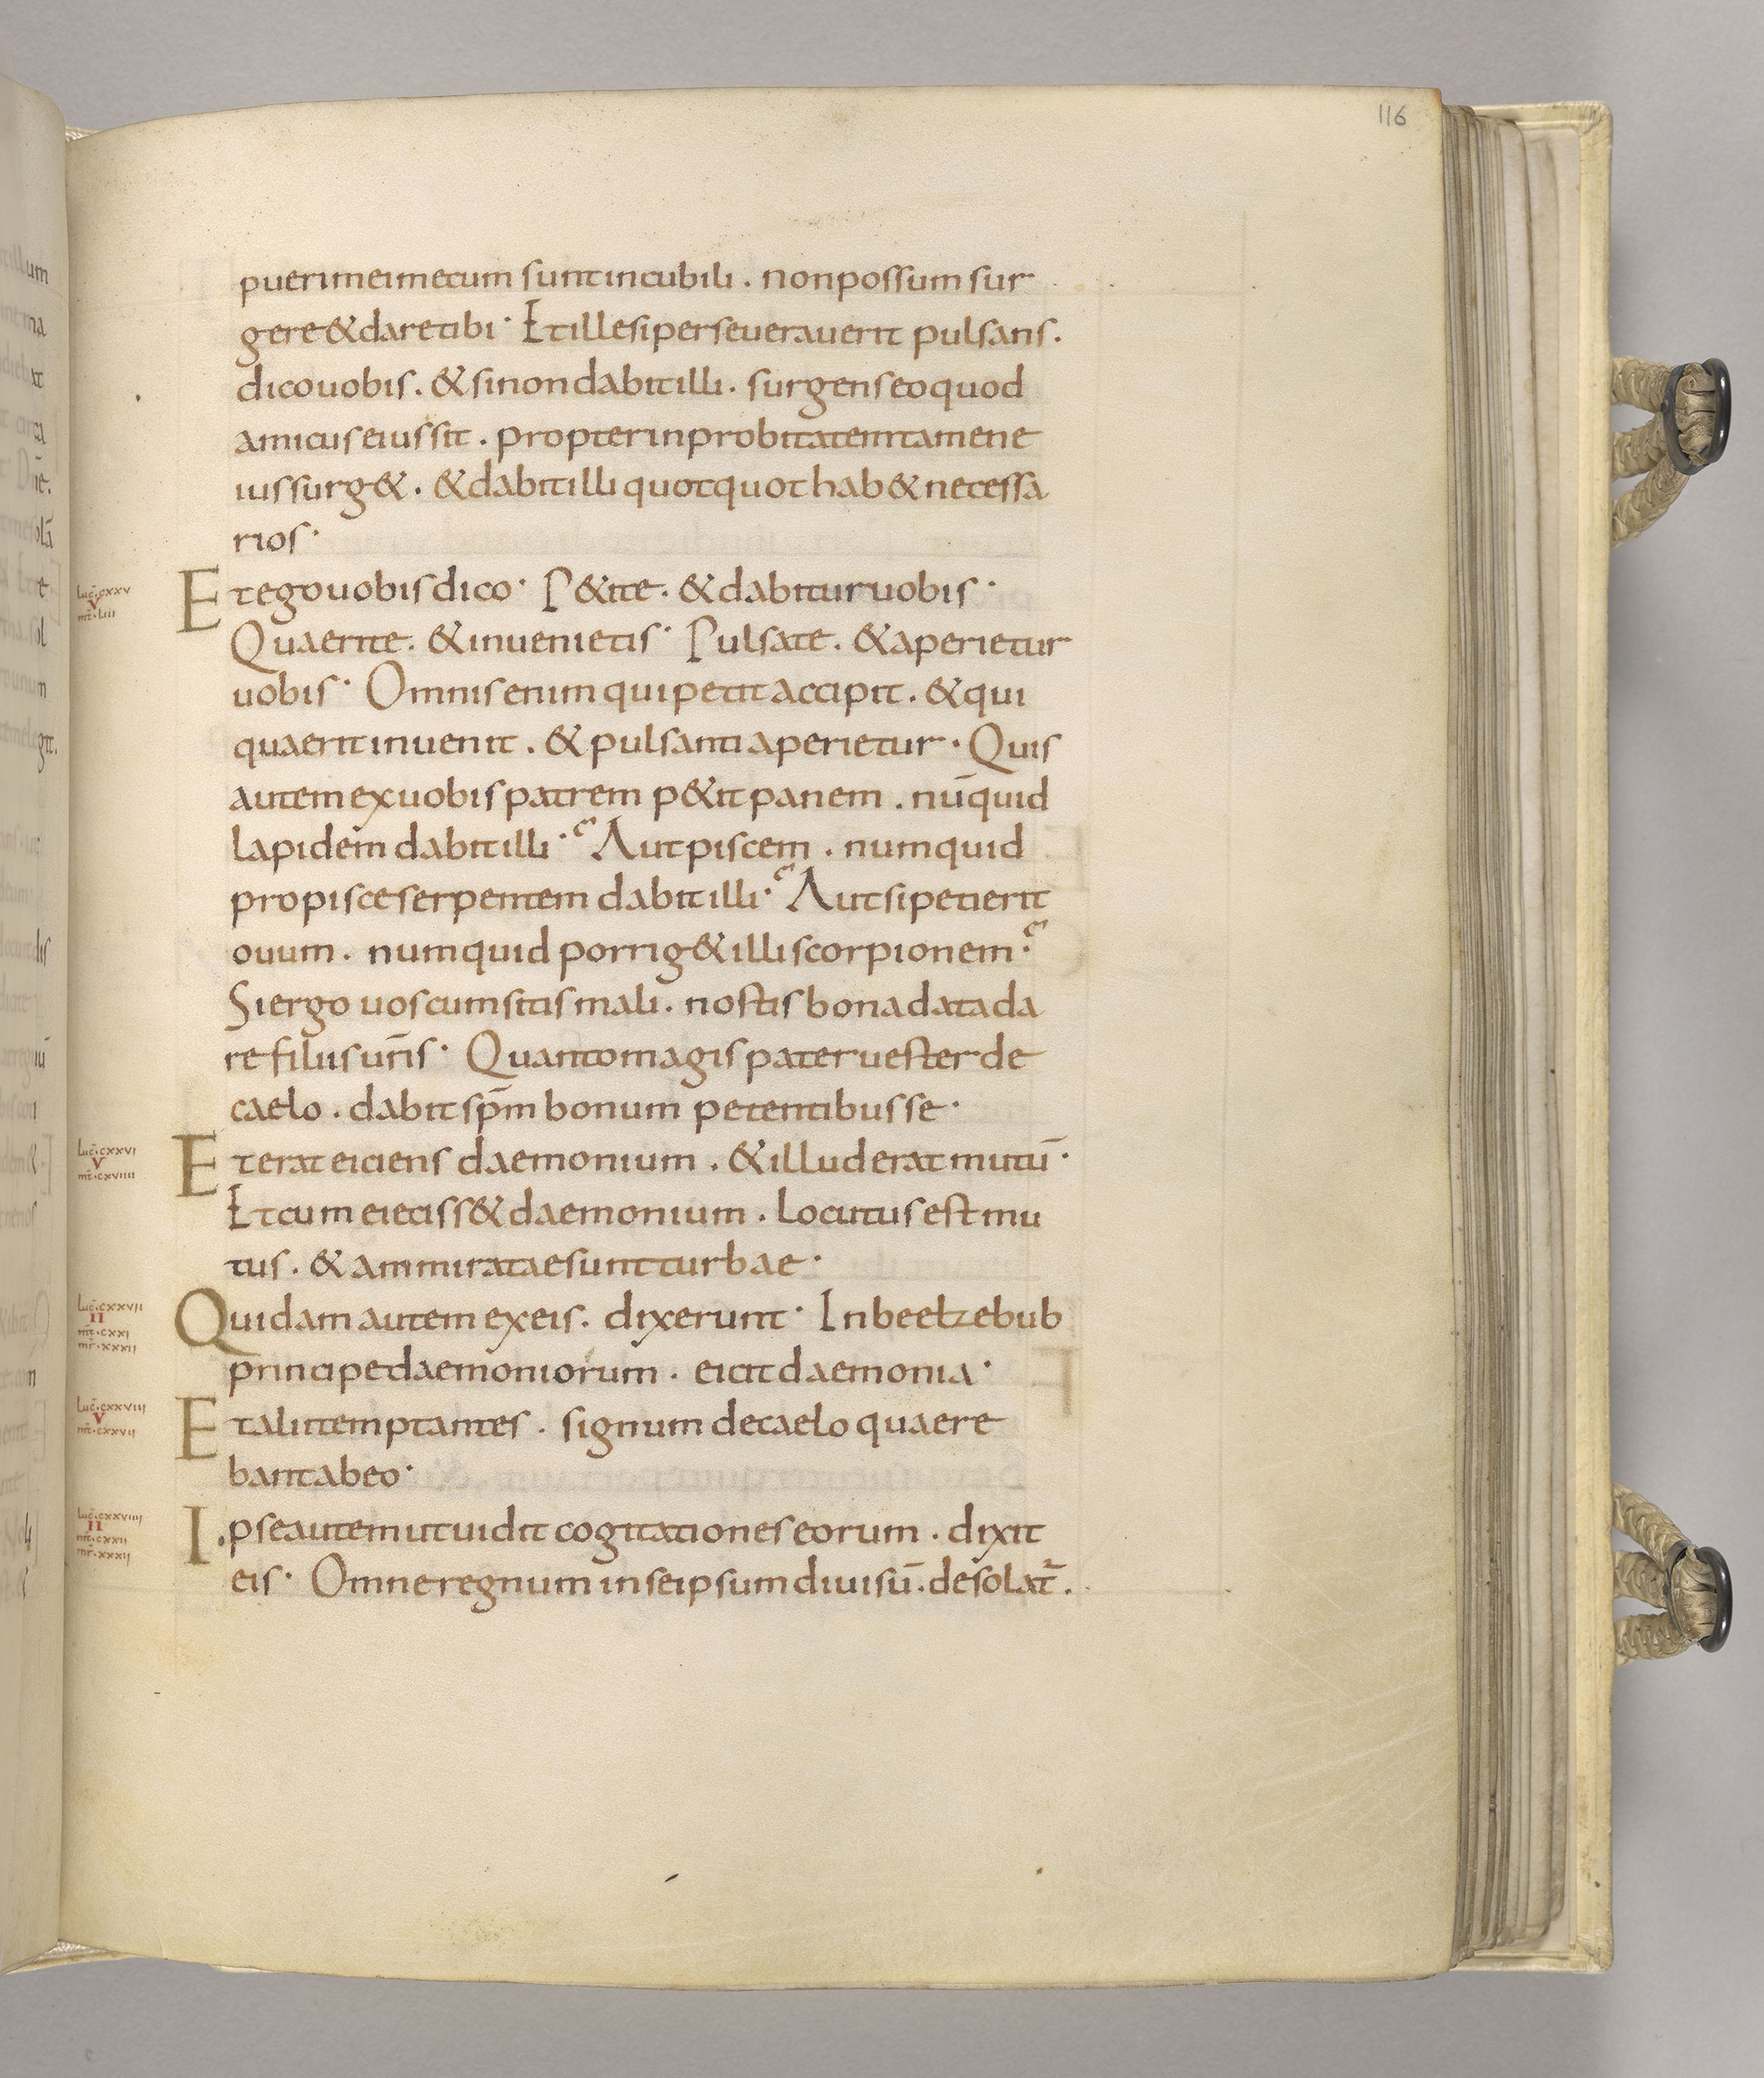 116
puerimeimecum suntincubili . nonpossum sur
gere&daretibi · Etillesiperseuerauerit pulsans .
dicouobis . &sinondabitilli . surgenseoquod
amicuseiussit . propterinprobitatemtamene
iussurg& . &dabitilli quotquot hab&necessa
rios ·
luc̄.cxxv
v
mt̄.liii
Etegouobisdico · P&ite . &dabituruobis ·
Quaerite . &inuenietis · Pulsate . &aperietur
uobis · Omnisenim quipetitaccipit . &qui
quaeritinuenit . &pulsantiaperietur · Quis
autemexuobispatrem p&itpanem . nūquid
lapidem dabitilli ? Autpiscem . numquid
propisceserpentem dabitilli ? Autsipetierit
ouum . numquid porrig&illiscorpionem ?
Siergo uoscumsitismali . nostisbonadatada
refiliisurīs · Quantomagispateruesterde
caelo . dabitsp̄m bonum petentibusse ·
luc̄.cxxvi
v
mt̄.cxviiii
Eterateiciens daemonium . &illuderatmutū ·
Etcumeieciss&daemonium . Locutusestmu
tus . &ammirataesuntturbae ·
luc̄.cxxvii
ii
mt̄.cxxi
mr̄.xxxii
Quidamautemexeis . dixerunt · Inbeelzebub
principedaemoniorum . eicitdaemonia ·
luc̄.cxxviii
v
mt̄.cxxvii
Etaliitemptantes . signumdecaeloquaere
bantabeo ·
luc̄.cxxviiii
ii
mt̄.cxxii
mr̄.xxxii
Ipseautemutuidit cogitationeseorum . dixit
eis · Omneregnuminseipsumdiuisū . desolat̄ .